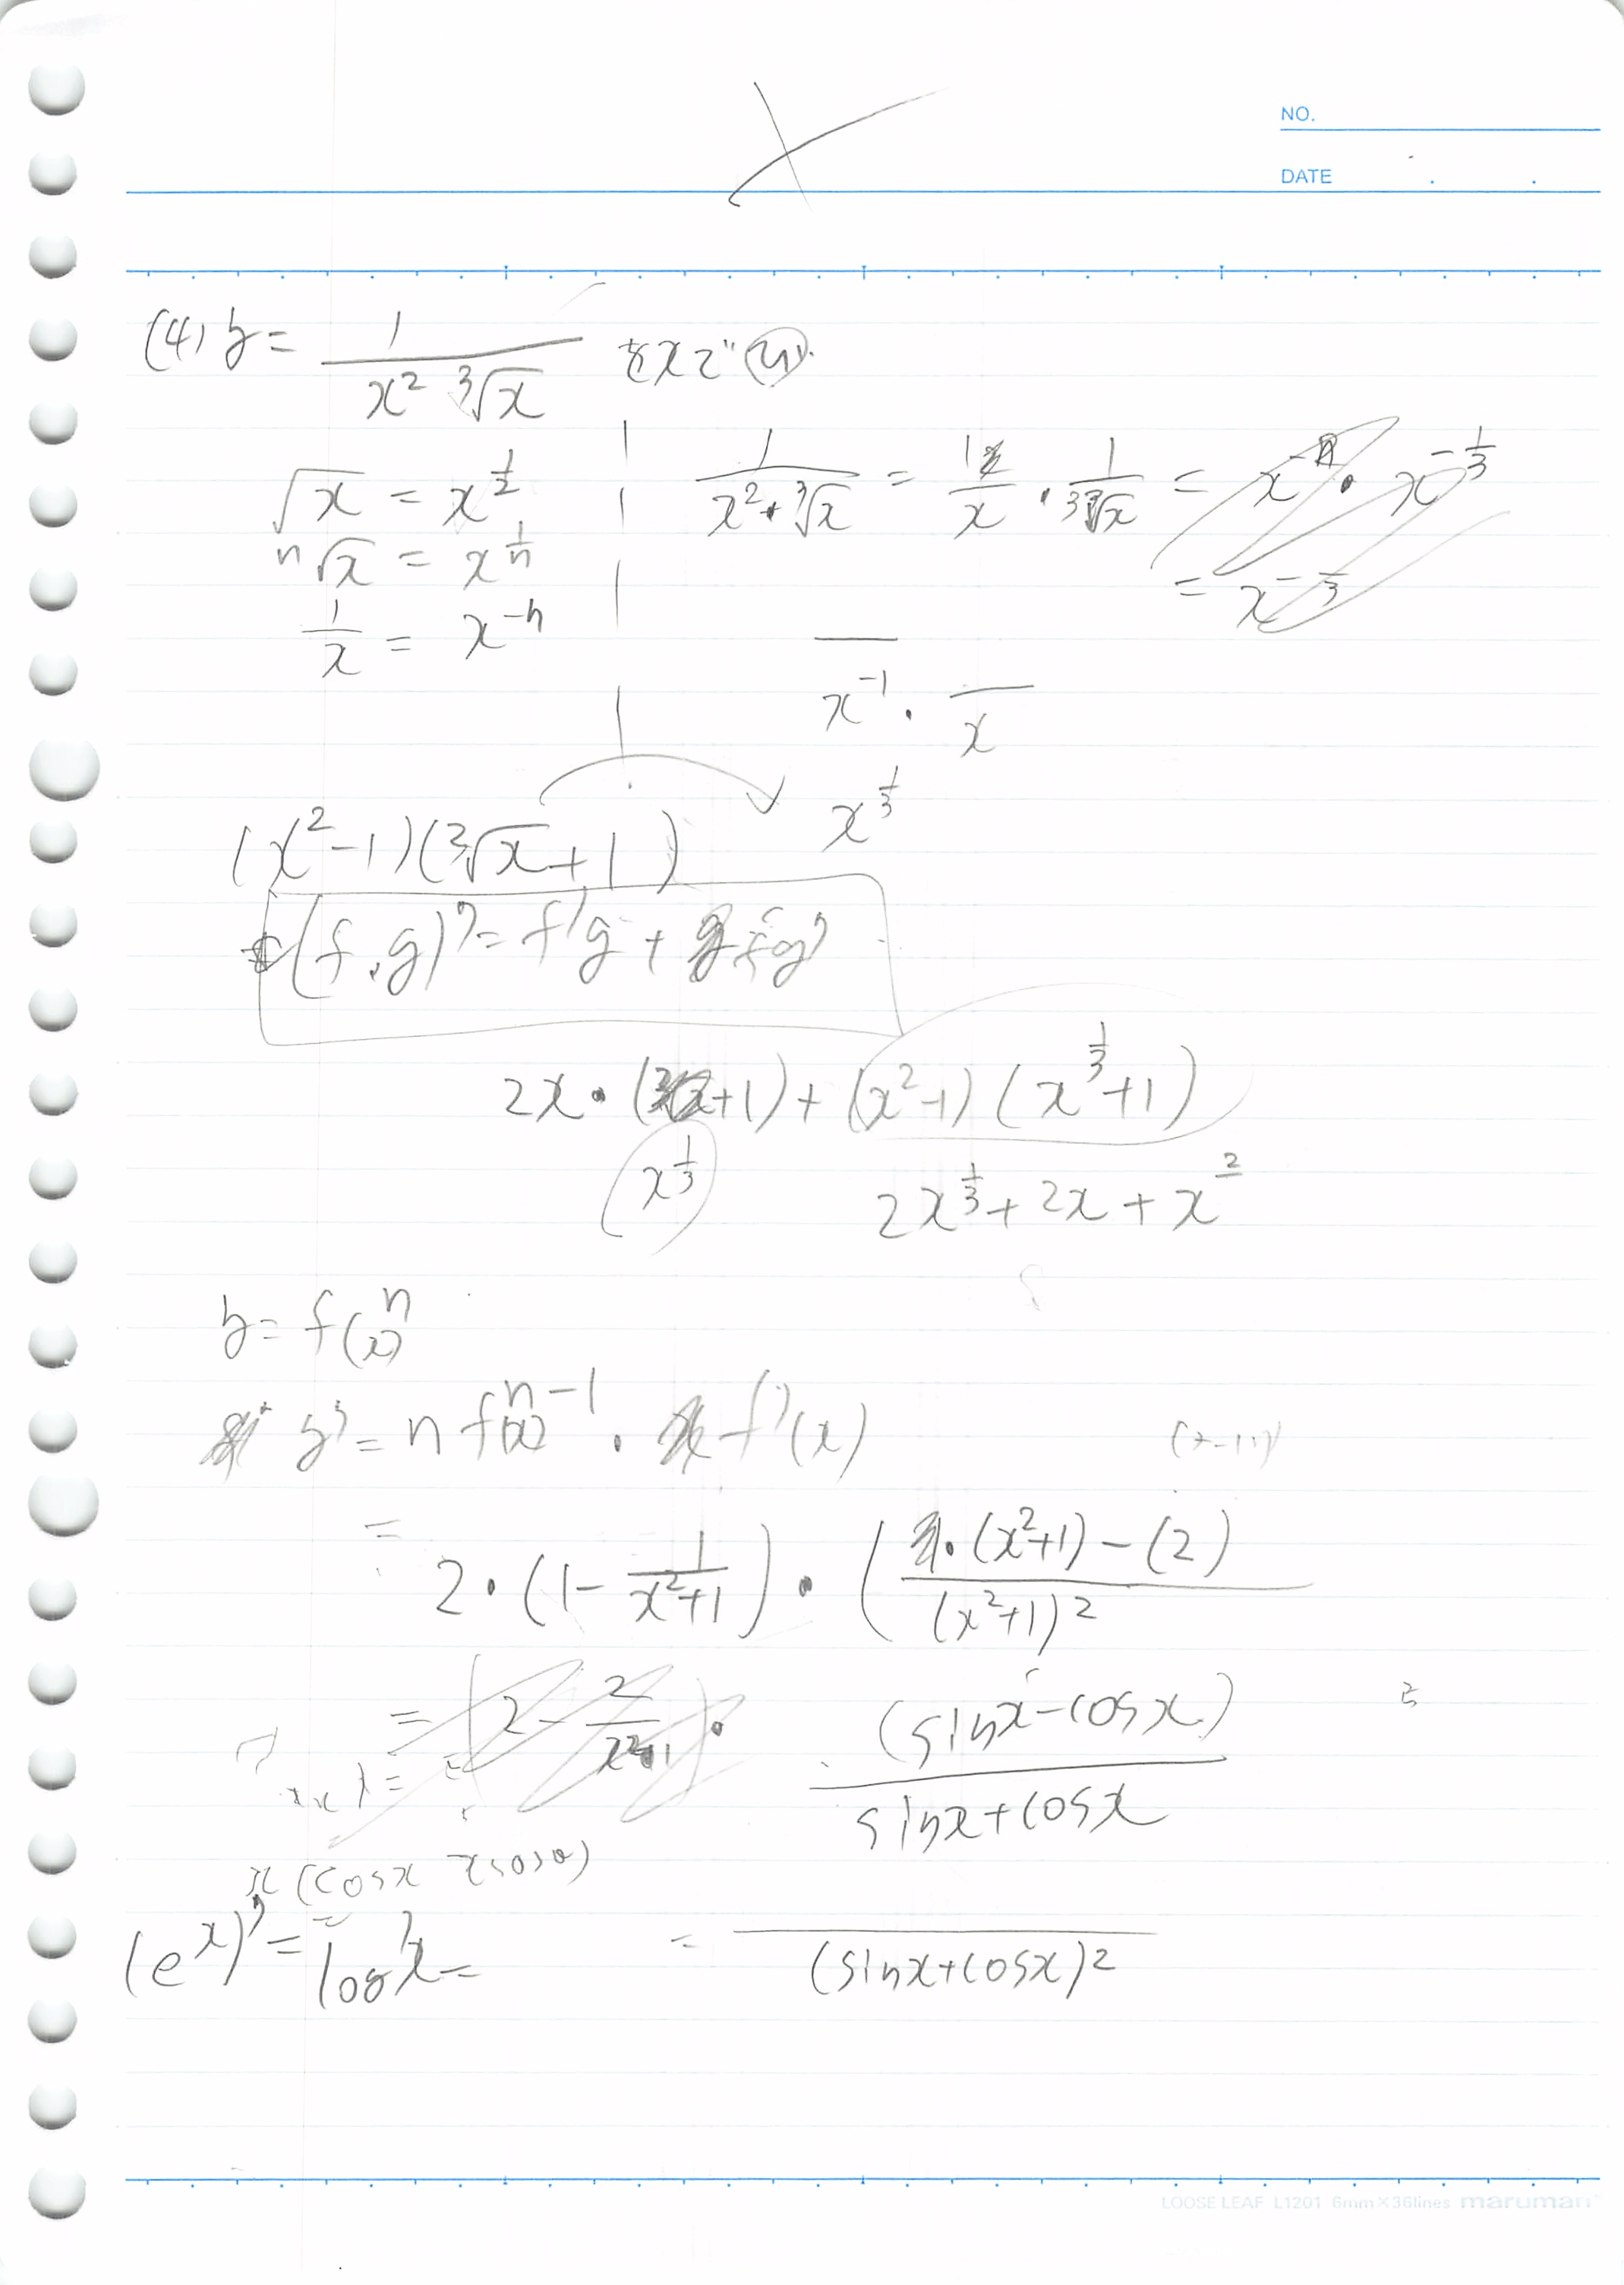 NO.
DATE
(4) y = 1 / (x² ∛x) をxで微.
√x = x^(1/2)
ⁿ√x = x^(1/n)
1/x = x^(-n)
1/(x²・∛x) = 1/x ・ 1/∛x = x ・ x^(-1/3)
= x^(-1/3)
x^(-1) ・ x
x^(1/3)
(x²-1)(∛x+1)
(f・g)' = f'g + fg'
2x・( +1) + (x²-1)(x^(1/3)+1)
x^(1/3)
2x^(1/3) + 2x + x²
y = f(x)^n
y' = n f(x)^(n-1) ・ f'(x)
= 2・(1 - 1/(x²+1)) ・ ( (1・(x²+1) - (2)) / (x²+1)²
= (2 - 2/(x²+1))・
(sinx-cosx) / sinx+cosx
x (cosx
(e^x)' = log x =
= / (sinx+cosx)²
LOOSE LEAF L1201 6mm×36lines maruman